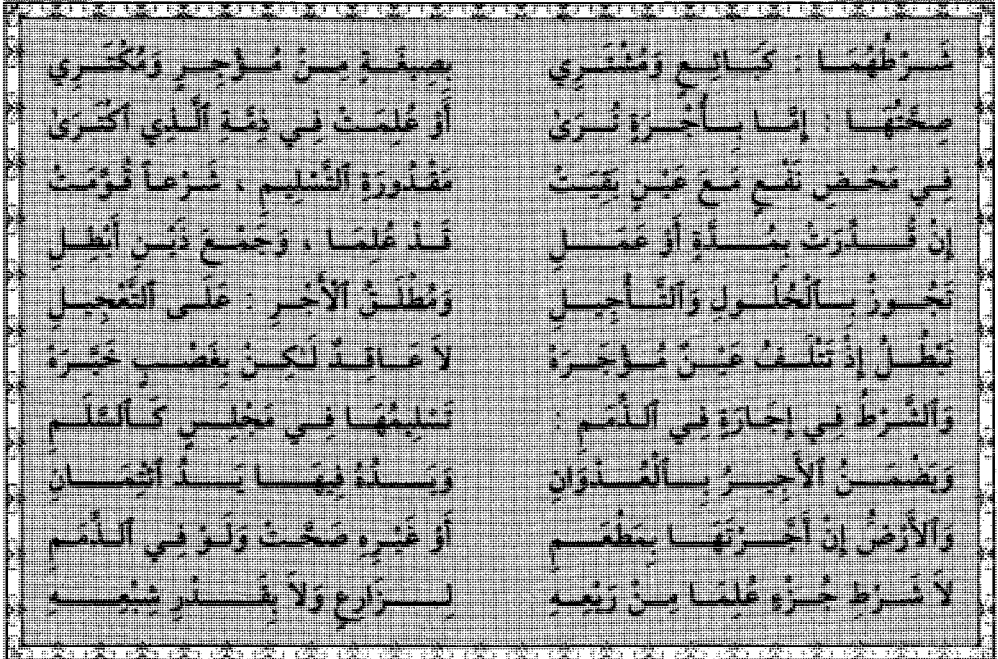 شَرْطُهُمَا : كَبَائِعٍ وَمُشْتَرِي بِصِيغَةٍ مِنْ مُؤْجِرٍ وَمُكْتَرِي
صِحَّتُهَا : إِمَّا بِأُجْرَةٍ تُرَىٰ أَوْ عُلِمَتْ فِي ذِمَّةِ ٱلَّذِي ٱكْتَرَىٰ
فِي مَحْضِ نَفْعٍ مَعَ عَيْنٍ بَقِيَتْ مَقْدُورَةِ ٱلتَّسْلِيمِ ، شَرْعاً قُوِّمَتْ
إِنْ قُدِّرَتْ بِمُدَّةٍ أَوْ عَمَلِ قَدْ عُلِمَا ، وَجَمْعَ ذَيْنِ أَبْطِلِ
تَجُوزُ بِٱلْحُلُولِ وَٱلتَّأْجِيلِ وَمُطْلَقُ ٱلْأَجْرِ : عَلَى ٱلتَّعْجِيلِ
تَبْطُلُ إِذْ تَتْلَفُ عَيْنٌ مُؤْجَرَهْ لَا عَاقِدٌ لَٰكِنْ بِغَصْبٍ خَيَّرَهْ
وَٱلشَّرْطُ فِي إِجَارَةٍ فِي ٱلذِّمَمِ : تَسْلِيمُهَا فِي مَجْلِسٍ كَٱلسَّلَمِ
وَيَضْمَنُ ٱلْأَجِيرُ بِٱلْعُدْوَانِ وَيَدُهُ فِيهَا يَدُ ٱئْتِمَانِ
وَٱلْأَرْضُ إِنْ أَجَّرْتَهَا بِمَطْعَمِ أَوْ غَيْرِهِ صَحَّتْ وَلَوْ فِي ٱلذِّمَمِ
لَا شَرْطِ جُزْءٍ عُلِمَا مِنْ رَيْعِهِ لِزَارِعٍ وَلَا بِقَدْرِ شِبْعِهِ